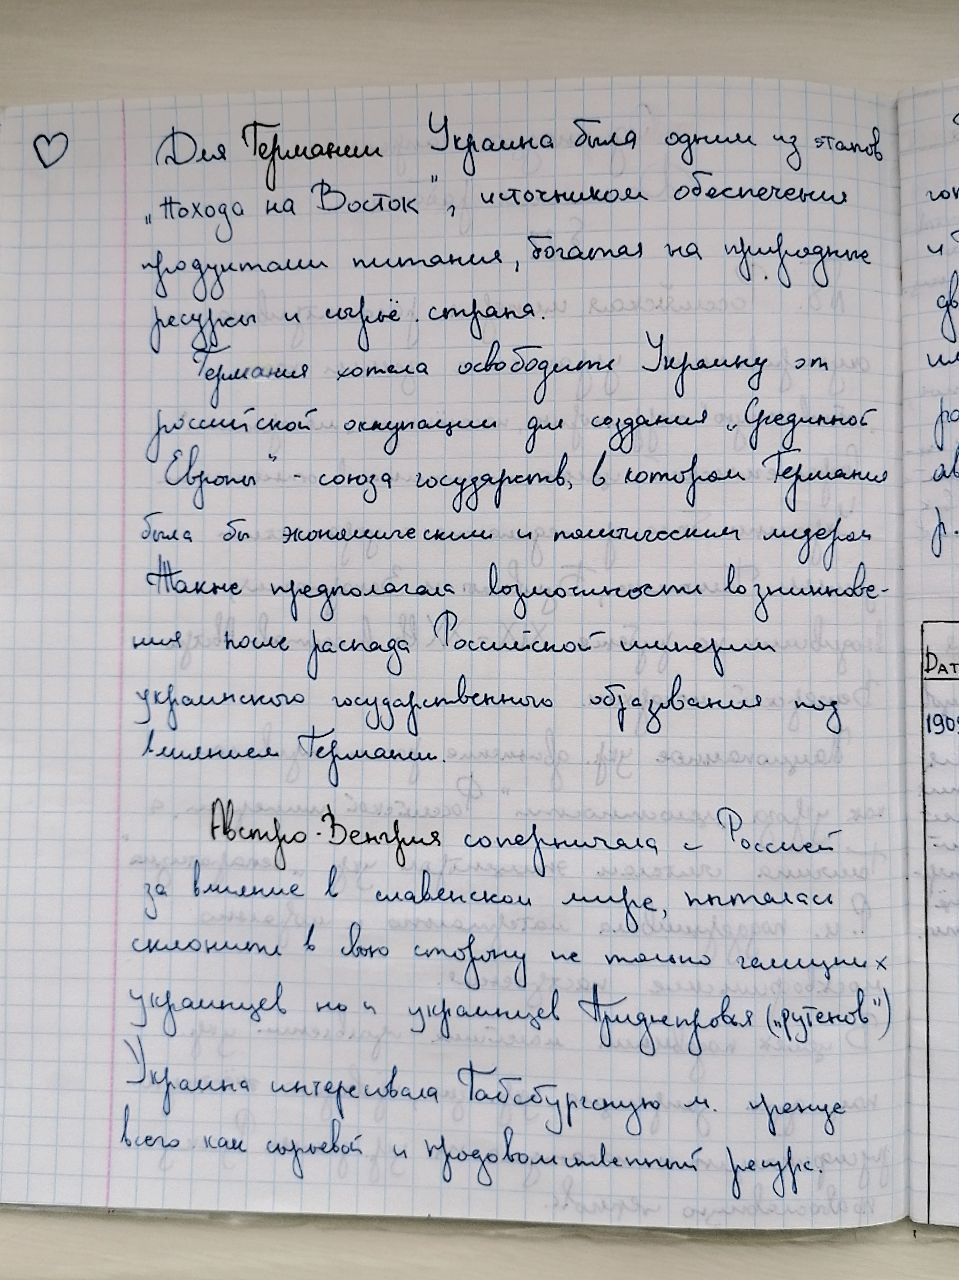 Для Германии Украина была одним из этапов
„Похода на Восток", источником обеспечения
продуктами питания, богатая на природные
ресурсы и сырьё страна.
Германия хотела освободить Украину от
российской оккупации для создания „Срединной
Европы" - союза государств, в котором Германия
была бы экономическим и политическим лидером
Также предполагала возможности возникнове-
ния после распада Российской империи
украинского государственного образования под
влиянием Германии.
Австро-Венгрия соперничала с Россией
за влияние в славенском мире, пыталась
склонить в свою сторону не только галицких
украинцев но и украинцев Приднепровья („рутенов")
Украина интересовала Габсбургскую м. прежде
всего как сырьевой и продовольственный ресурс.
Dат
1909